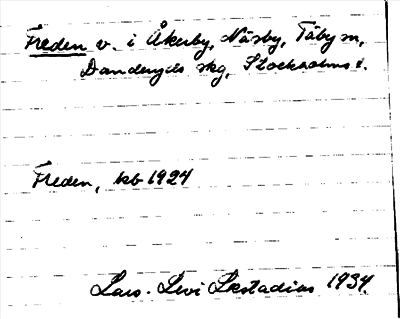 Freden v. i Åkerby, Näsby, Täby sn,
Danderyds skg, Stockholms l.
Freden, kb 1924
Lars-Levi Læstadius 1934.